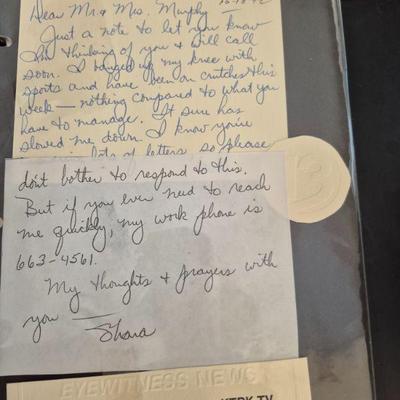 Dear Mr. & Mrs. Murphy
Just a note to let you know
I'm thinking of you & will call
soon. I banged up my knee with
sports and have been on crutches this
week — nothing compared to what you
have to manage. It sure has
slowed me down. I know you're
lots of letters so please
don't bother to respond to this.
But if you ever need to reach
me quickly, my work phone is
663-4561.
My thoughts & prayers with
you —
Shara
EYEWITNESS NEWS
KTRK-TV